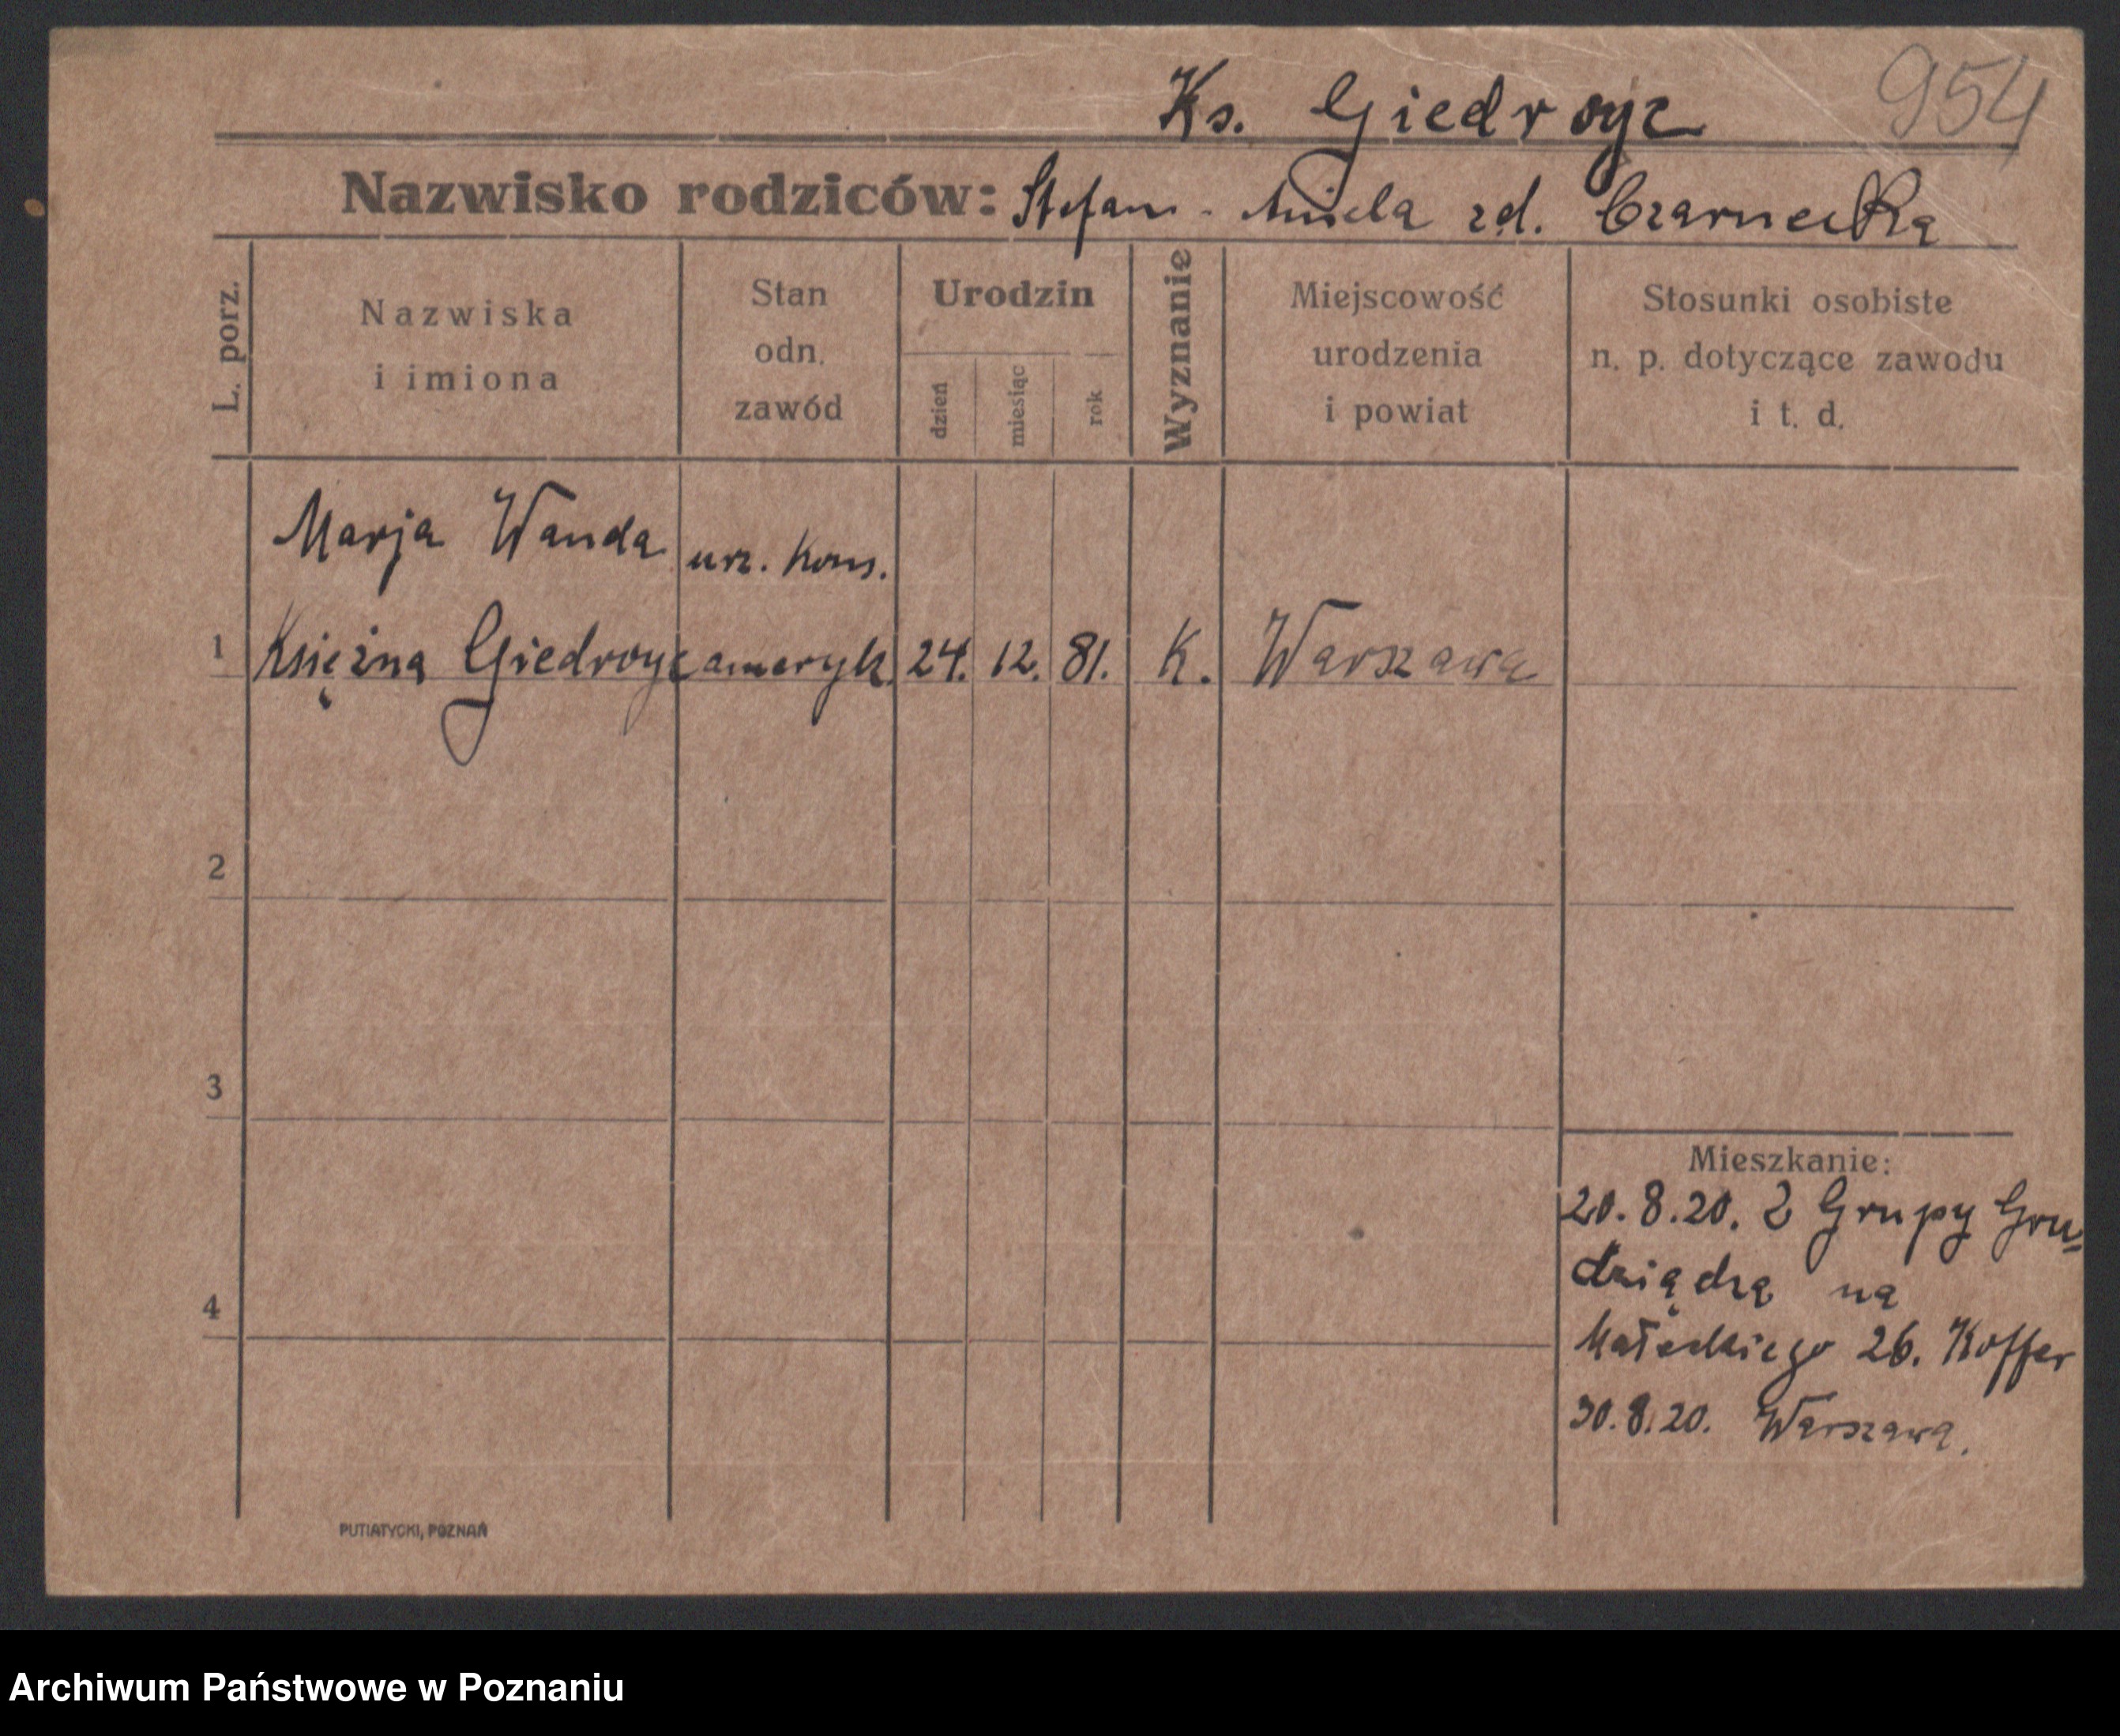 954
Ks. Giedroyc
Nazwisko rodziców: Stefan - Aniela zd. Czarnecka
L. porz.
Nazwiska
i imiona
Stan
odn.
zawód
Urodzin
dzień
miesiąc
rok
Wyznanie
Miejscowość
urodzenia
i powiat
Stosunki osobiste
n. p. dotyczące zawodu
i t. d.
Marja Wanda urz. Kons.
1 Księżna Giedroyc ameryk. 24. 12. 81. K. Warszawa
2
3
4
Mieszkanie:
20.8.20. Z Grupy Gru-
dziądza na
Małeckiego 26. Koffer
30.8.20. Warszawa.
PUTIATYCKI, POZNAŃ
Archiwum Państwowe w Poznaniu